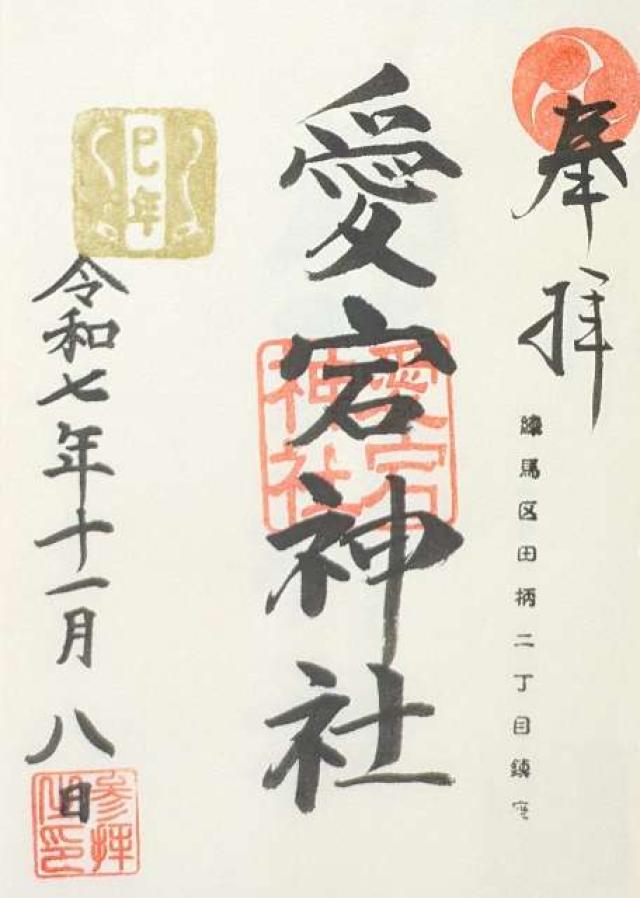 奉拝
練馬区田柄二丁目鎮座
愛宕神社
愛宕神社
巳年
令和七年十一月八日
参拝之印